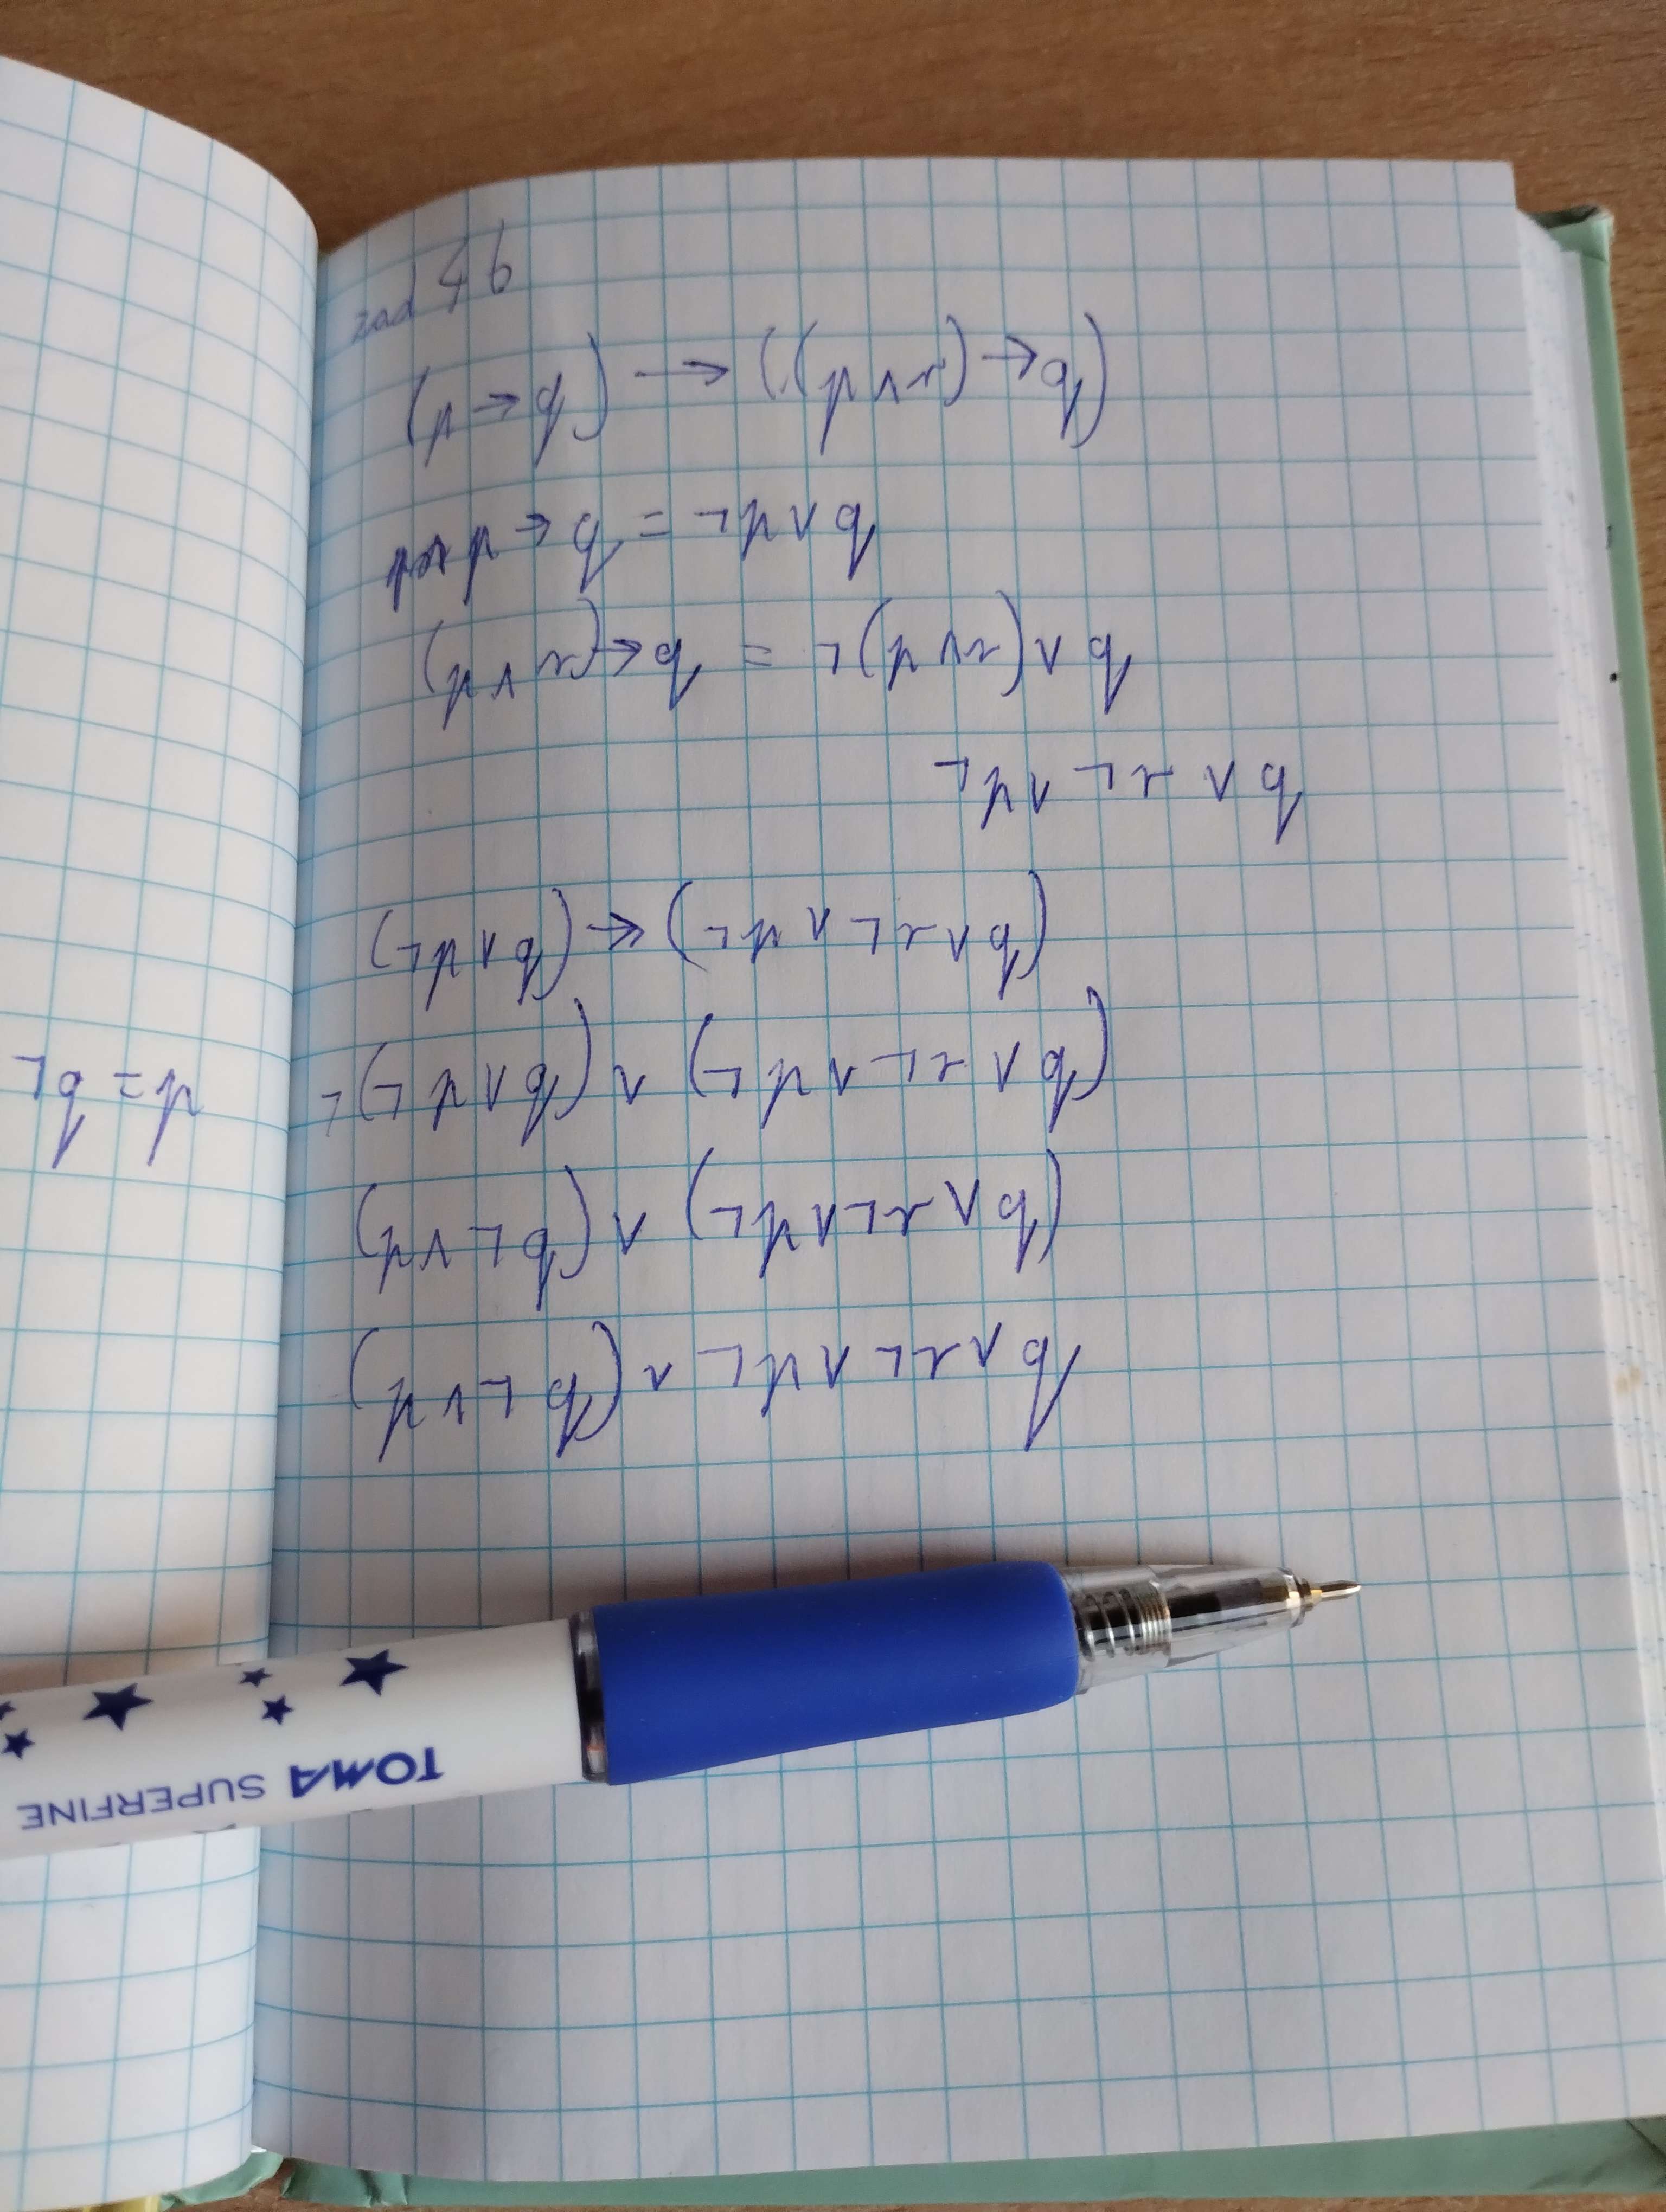 zad 46
(p → q) → ((p ∧ r) → q)
p → q = ¬p ∨ q
(p ∧ r) → q = ¬(p ∧ r) ∨ q
¬p ∨ ¬r ∨ q
(¬p ∨ q) → (¬p ∨ ¬r ∨ q)
¬q = p
¬(¬p ∨ q) ∨ (¬p ∨ ¬r ∨ q)
(p ∧ ¬q) ∨ (¬p ∨ ¬r ∨ q)
(p ∧ ¬q) ∨ ¬p ∨ ¬r ∨ q
TOMA SUPERFINE